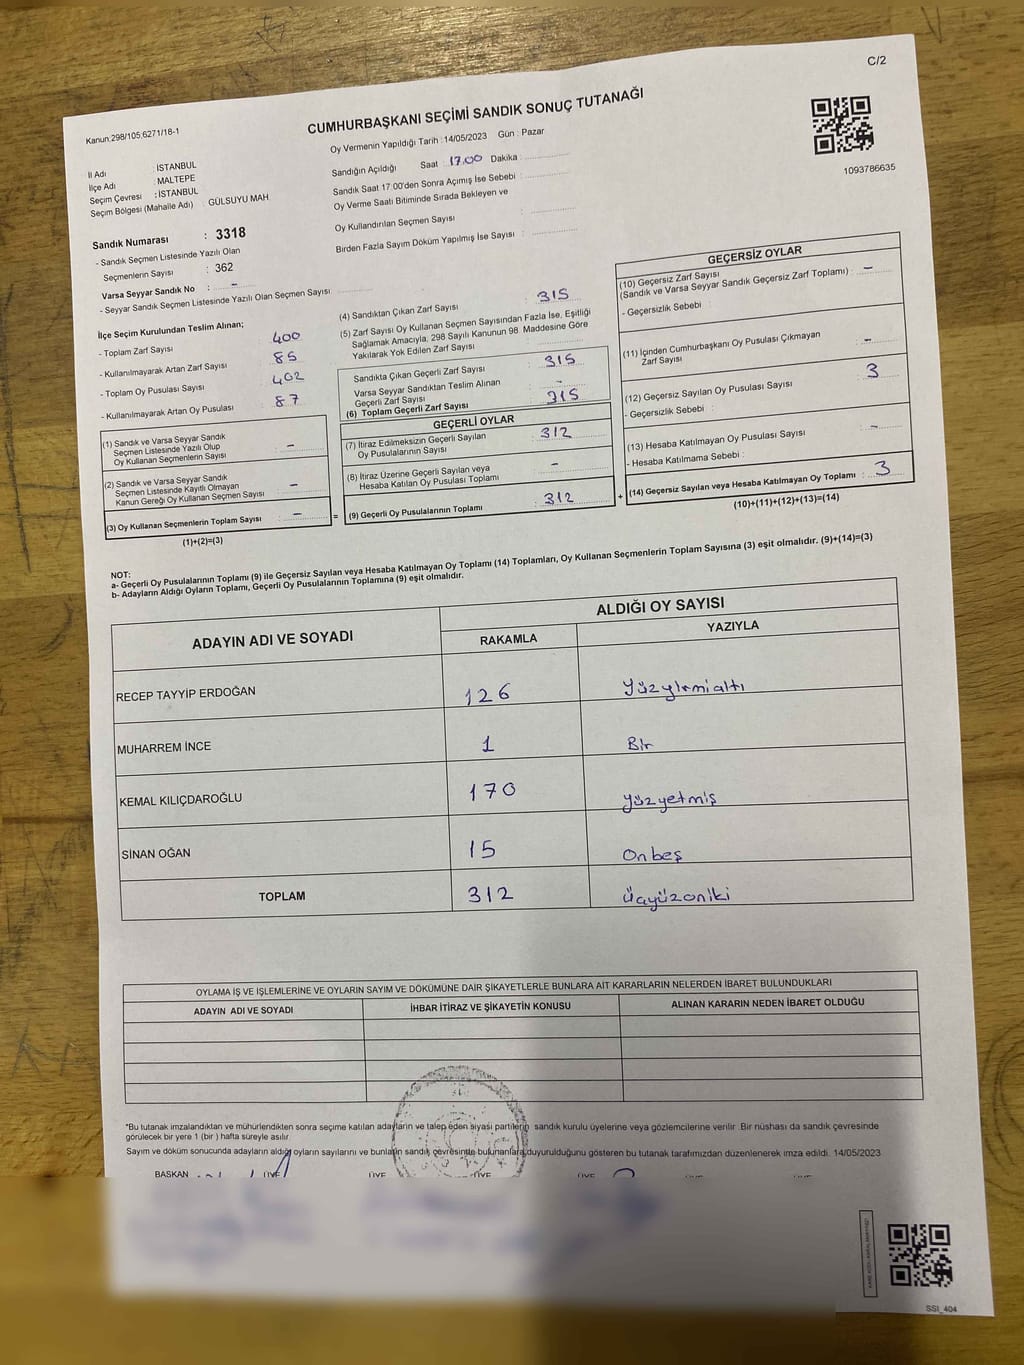 C/2
Kanun.298/105,6271/18-1
CUMHURBAŞKANI SEÇİMİ SANDIK SONUÇ TUTANAĞI
Oy Vermenin Yapıldığı Tarih : 14/05/2023 Gün : Pazar
1093786635
İl Adı : İSTANBUL
İlçe Adı : MALTEPE
Seçim Çevresi : İSTANBUL
Seçim Bölgesi (Mahalle Adı) : GÜLSUYU MAH
Sandık Numarası : 3318
- Sandık Seçmen Listesinde Yazılı Olan
Seçmenlerin Sayısı : 362
Varsa Seyyar Sandık No : -
- Seyyar Sandık Seçmen Listesinde Yazılı Olan Seçmen Sayısı :
Sandığın Açıldığı Saat : 17.00 Dakika :
Sandık Saat 17:00'den Sonra Açımış İse Sebebi :
Oy Verme Saati Bitiminde Sırada Bekleyen ve
Oy Kullandırılan Seçmen Sayısı :
Birden Fazla Sayım Döküm Yapılmış İse Sayısı :
İlçe Seçim Kurulundan Teslim Alınan;
- Toplam Zarf Sayısı : 400
- Kullanılmayarak Artan Zarf Sayısı : 85
- Toplam Oy Pusulası Sayısı : 402
- Kullanılmayarak Artan Oy Pusulası : 87
(1) Sandık ve Varsa Seyyar Sandık
Seçmen Listesinde Yazılı Olup
Oy Kullanan Seçmenlerin Sayısı : -
(2) Sandık ve Varsa Seyyar Sandık
Seçmen Listesinde Kayıtlı Olmayan
Kanun Gereği Oy Kullanan Seçmen Sayısı : -
(3) Oy Kullanan Seçmenlerin Toplam Sayısı : -
(1)+(2)=(3)
(4) Sandıktan Çıkan Zarf Sayısı : 315
(5) Zarf Sayısı Oy Kullanan Seçmen Sayısından Fazla İse, Eşitliği
Sağlamak Amacıyla, 298 Sayılı Kanunun 98. Maddesine Göre
Yakılarak Yok Edilen Zarf Sayısı :
Sandıkta Çıkan Geçerli Zarf Sayısı : 315
Varsa Seyyar Sandıktan Teslim Alınan
Geçerli Zarf Sayısı : -
(6) Toplam Geçerli Zarf Sayısı : 315
GEÇERLİ OYLAR
(7) İtiraz Edilmeksizin Geçerli Sayılan
Oy Pusulalarının Sayısı : 312
(8) İtiraz Üzerine Geçerli Sayılan veya
Hesaba Katılan Oy Pusulası Toplamı : -
= (9) Geçerli Oy Pusulalarının Toplamı : 312 +
GEÇERSİZ OYLAR
(10) Geçersiz Zarf Sayısı
(Sandık ve Varsa Seyyar Sandık Geçersiz Zarf Toplamı) : -
- Geçersizlik Sebebi :
(11) İçinden Cumhurbaşkanı Oy Pusulası Çıkmayan
Zarf Sayısı : -
(12) Geçersiz Sayılan Oy Pusulası Sayısı : 3
- Geçersizlik Sebebi :
(13) Hesaba Katılmayan Oy Pusulası Sayısı : -
- Hesaba Katılmama Sebebi :
(14) Geçersiz Sayılan veya Hesaba Katılmayan Oy Toplamı : 3
(10)+(11)+(12)+(13)=(14)
NOT:
a- Geçerli Oy Pusulalarının Toplamı (9) ile Geçersiz Sayılan veya Hesaba Katılmayan Oy Toplamı (14) Toplamları, Oy Kullanan Seçmenlerin Toplam Sayısına (3) eşit olmalıdır. (9)+(14)=(3)
b- Adayların Aldığı Oyların Toplamı, Geçerli Oy Pusulalarının Toplamına (9) eşit olmalıdır.
ADAYIN ADI VE SOYADI ALDIĞI OY SAYISI
RAKAMLA YAZIYLA
RECEP TAYYİP ERDOĞAN 126 Yüzyirmialtı
MUHARREM İNCE 1 Bir
KEMAL KILIÇDAROĞLU 170 Yüzyetmiş
SİNAN OĞAN 15 Onbeş
TOPLAM 312 Üçyüzoniki
OYLAMA İŞ VE İŞLEMLERİNE VE OYLARIN SAYIM VE DÖKÜMÜNE DAİR ŞİKAYETLERLE BUNLARA AİT KARARLARIN NELERDEN İBARET BULUNDUKLARI
ADAYIN ADI VE SOYADI İHBAR İTİRAZ VE ŞİKAYETİN KONUSU ALINAN KARARIN NEDEN İBARET OLDUĞU
*Bu tutanak imzalandıktan ve mühürlendikten sonra seçime katılan adayların ve talep eden siyasi partilerin sandık kurulu üyelerine veya gözlemcilerine verilir. Bir nüshası da sandık çevresinde
görülecek bir yere 1 (bir) hafta süreyle asılır.
Sayım ve döküm sonucunda adayların aldığı oyların sayılarını ve bunların sandık çevresinde bulunanlara duyurulduğunu gösteren bu tutanak tarafımızdan düzenlenerek imza edildi. 14/05/2023
BAŞKAN ÜYE ÜYE ÜYE ÜYE ÜYE ÜYE
SSI_404